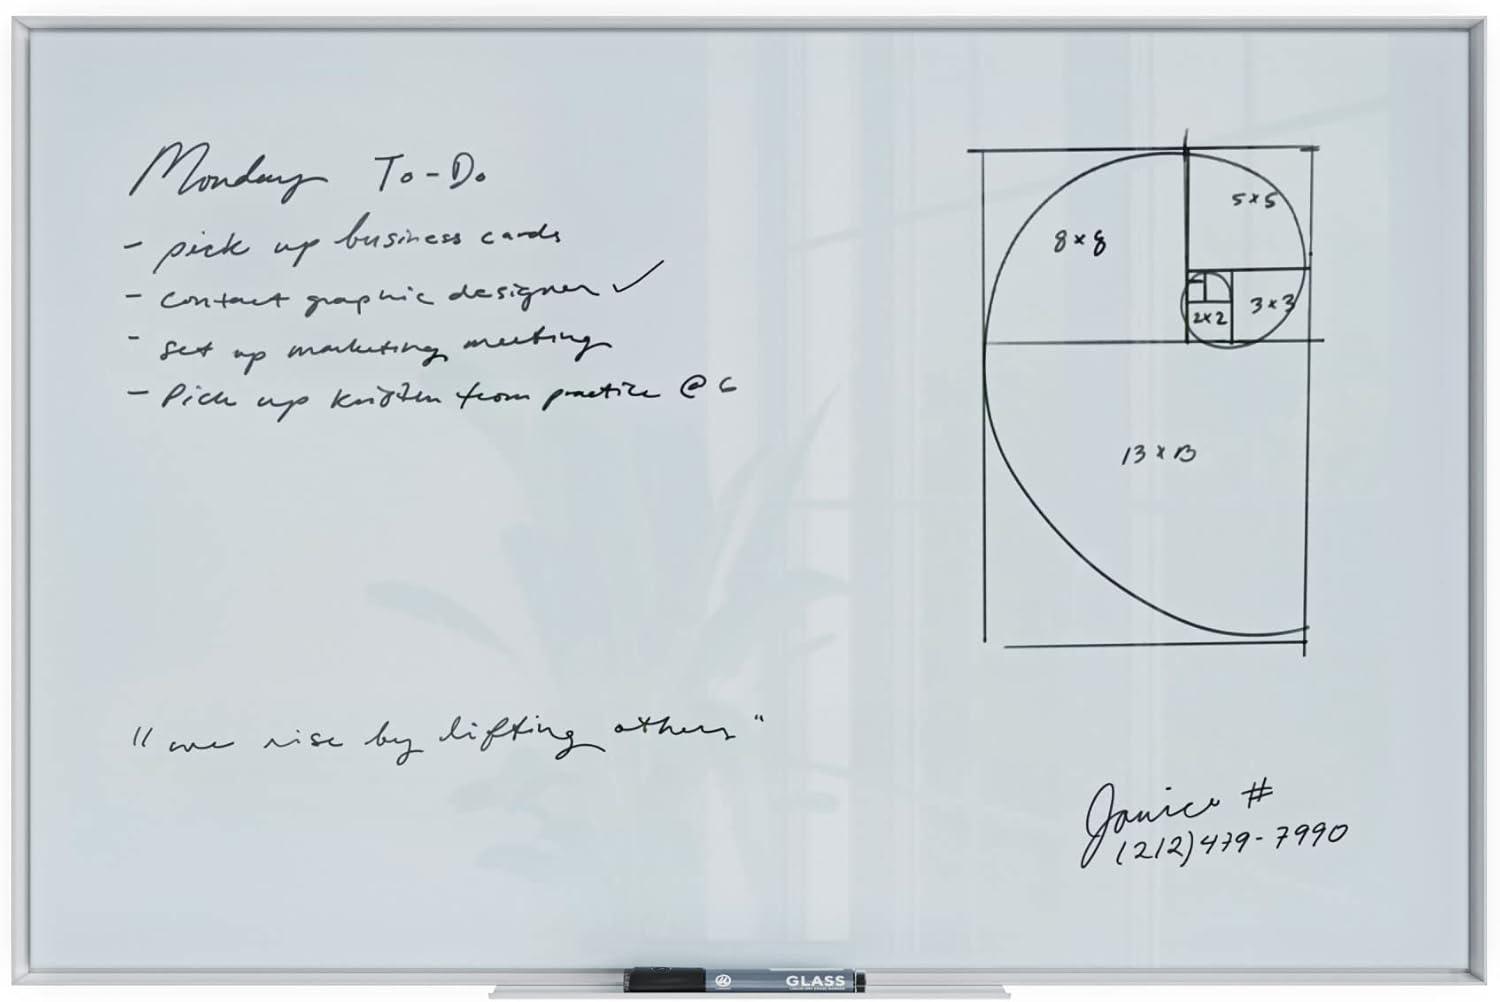 Monday To-Do
- pick up business cards
- contact graphic designer ✓
- set up marketing meeting
- Pick up Kristen from practice @ 6
"we rise by lifting others"
5 x 5
8 x 8
3 x 3
2 x 2
13 x 13
Janice #
(212) 479-7990
GLASS